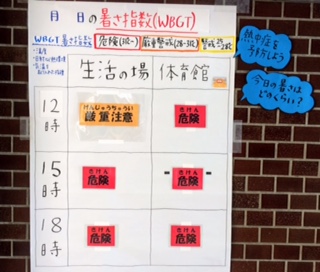 月 日の暑さ指数(WBGT)
WBGT 暑さ指数 危険(31℃~) 厳重警戒(28-31℃) 警戒
生活の場 体育館
熱中症を
予防しよう
今日の暑さは
どのくらい?
12時
げんじゅうちゅうい
厳重注意
きけん
危険
15時
きけん
危険
きけん
危険
18時
きけん
危険
きけん
危険